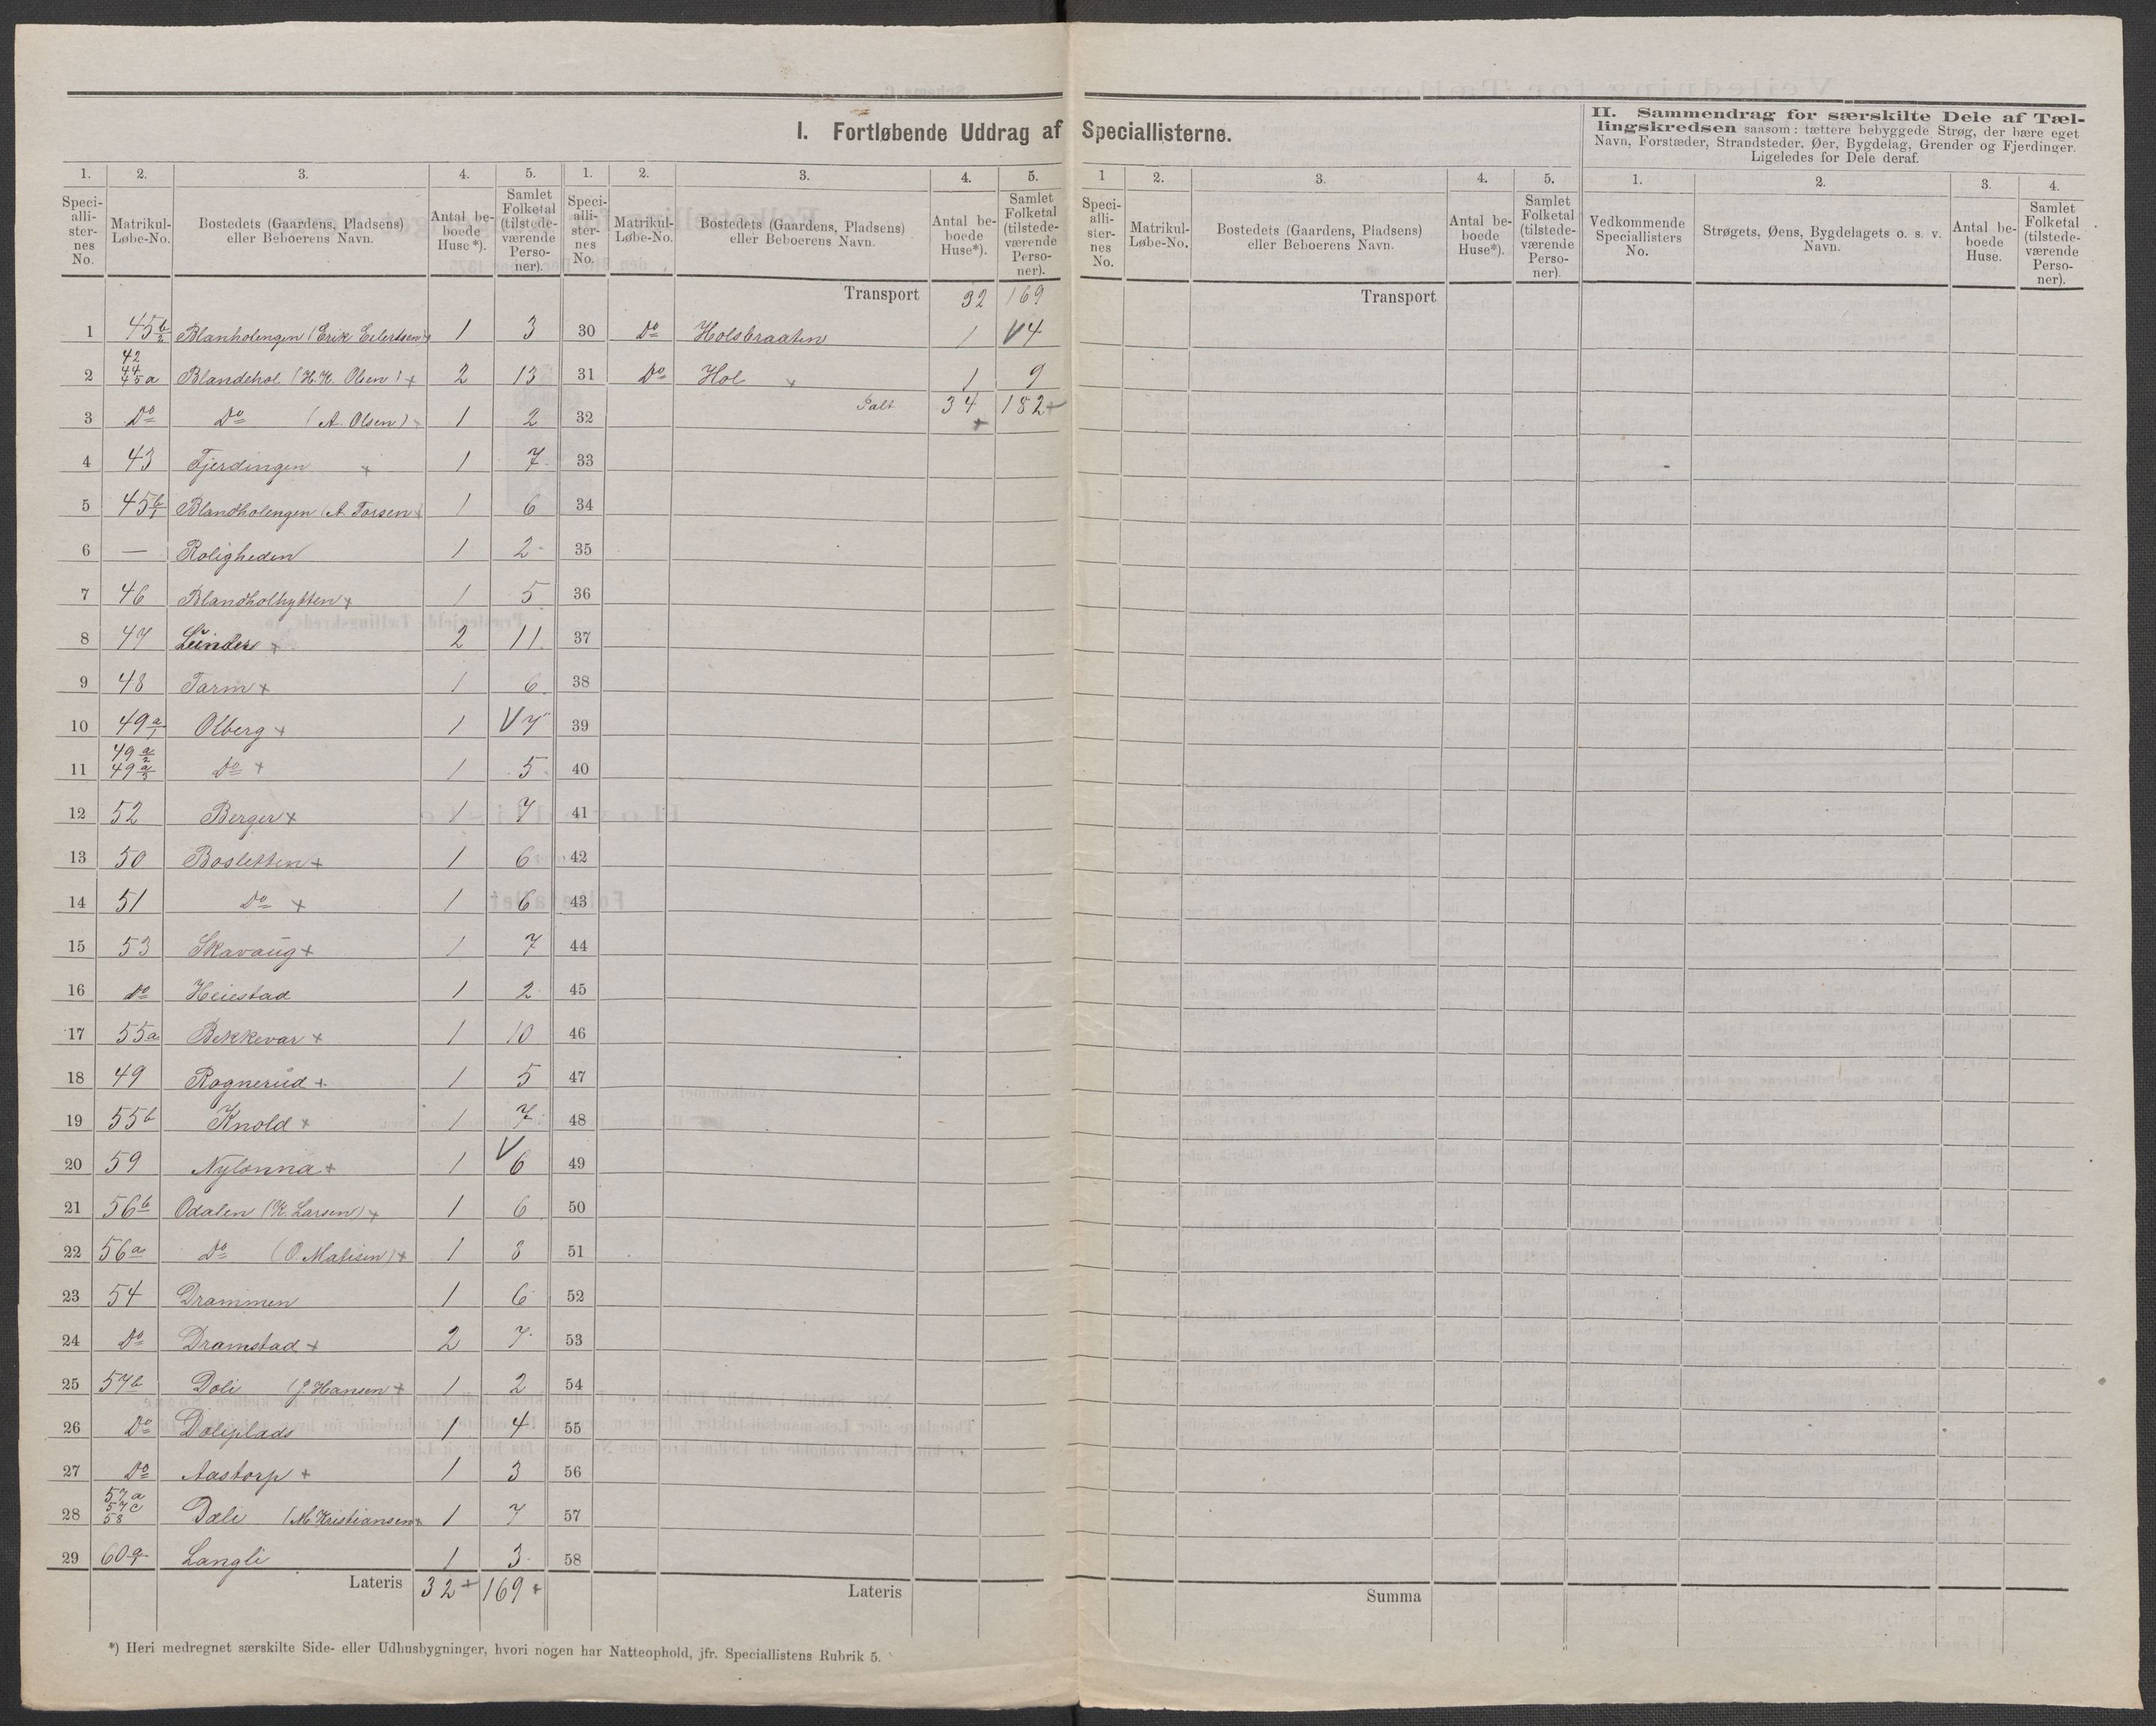 I. Fortløbende Uddrag af Speciallisterne.
II. Sammendrag for særskilte Dele af Tæl-
lingskredsen saasom: tættere bebyggede Strøg, der bære eget
Navn, Forstæder, Strandsteder, Øer, Bygdelag, Grender og Fjerdinger.
Ligeledes for Dele deraf.
1. 2. 3. 4. 5. 1. 2. 3. 4. 5. 1 2. 3. 4. 5. 1. 2. 3. 4.
Speci-alli-ster-nes No. Matrikul-Løbe-No. Bostedets (Gaardens, Pladsens) eller Beboerens Navn. Antal be-boede Huse*). Samlet Folketal (tilstede-værende Perso-ner).
Speci-alli-ster-nes No. Matrikul-Løbe-No. Bostedets (Gaardens, Pladsens) eller Beboerens Navn. Antal be-boede Huse*). Samlet Folketal (tilstede-værende Perso-ner).
Speci-alli-ster-nes No. Matrikul-Løbe-No. Bostedets (Gaardens, Pladsens) eller Beboerens Navn. Antal be-boede Huse*). Samlet Folketal (tilstede-værende Perso-ner).
Vedkommende Speciallisters No. Strøgets, Øens, Bygdelagets o. s. v. Navn. Antal be-boede Huse. Samlet Folketal (tilstede-værende Perso-ner).
Transport 32 169 Transport
1 45 b/2 Blanholengen (Erik Eilertsen) 1 3 30 Do Holsbraaten 1 V4
2 42 44 45a Blandehol (H.K. Olsen) + 2 13 31 Do Hol + 1 9
3 Do Do (A. Olsen) 1 2 32 Ialt 34 + 182 +
4 43 Fjerdingen + 1 7 33
5 45 b/1 Blandholengen (A. Torsen 1 6 34
6 — Roligheden 1 2 35
7 46 Blandholhytten + 1 5 36
8 47 Lunder + 2 11 37
9 48 Tarm + 1 6 38
10 49 a/1 Olberg + 1 V7 39
11 49 a/2 49 a/3 Do + 1 5 40
12 52 Berger + 1 7 41
13 50 Bosletten + 1 6 42
14 51 Do + 1 6 43
15 53 Skavaug + 1 7 44
16 Do Heiestad 1 2 45
17 55a Bekkevar + 1 10 46
18 49 Rognerud + 1 5 47
19 55b Knold + 1 7 48
20 59 Nylønna + 1 V6 49
21 56b Odalen (K. Larsen) + 1 6 50
22 56a Do (O. Matisen) + 1 3 51
23 54 Drammen 1 6 52
24 Do Dramstad + 2 7 53
25 57b Doli (J. Hansen + 1 2 54
26 Do Doliplads 1 4 55
27 Do Aastorp + 1 3 56
28 57a 57c 58 Dæli (M. Kristiansen + 1 7 57
29 60 a/1 Langli 1 3 58
Lateris 32 + 169 + Lateris Summa
*) Heri medregnet særskilte Side- eller Udhusbygninger, hvori nogen har Natteophold, jfr. Speciallistens Rubrik 5.